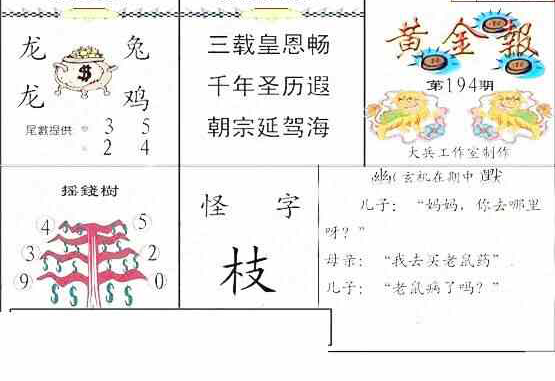 龙 兔
龙 鸡
尾數提供 3 5
2 4
三载皇恩畅
千年圣历遐
朝宗延驾海
黄金報
第194期
大兵工作室制作
摇錢樹
4 5
3 2
9 0
怪 字
枝
(玄机在期中
儿子：“妈妈，你去哪里
呀？”
母亲：“我去买老鼠药”.
儿子：“老鼠病了吗？”